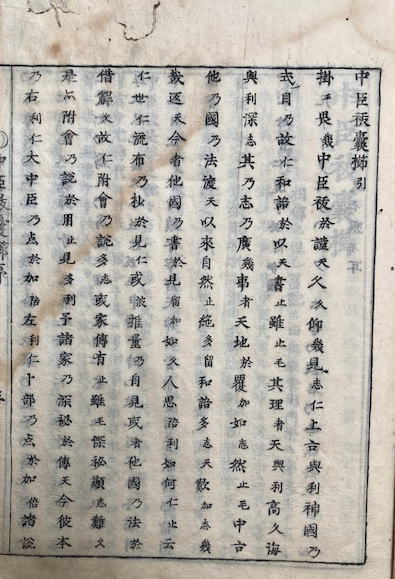 中臣祓嚢擲引
掛毛畏幾中臣祓於護天久久仰幾見志仁上古與利神國乃
式自乃故仁和語於以天書止雖止毛其理者天與利高久海
與利深志其乃志乃廣幾事者天地於覆加如志然止毛中古
他乃國乃法渡天以來自然止絁多留和語多志天歎加志幾
哉返天今者他國乃書於見留加如久人思陪利如何仁止云
仁世仁流布乃抄於見仁或波推量乃自見或者他國乃法於
借解久故仁附會乃説多志或家傳有止雖毛深秘顕志難久
是附會乃説於用止見多利予諸家乃深秘於傳天今彼本
乃右利仁大中臣乃点於加陪左利仁卜部乃点於加倍諸説